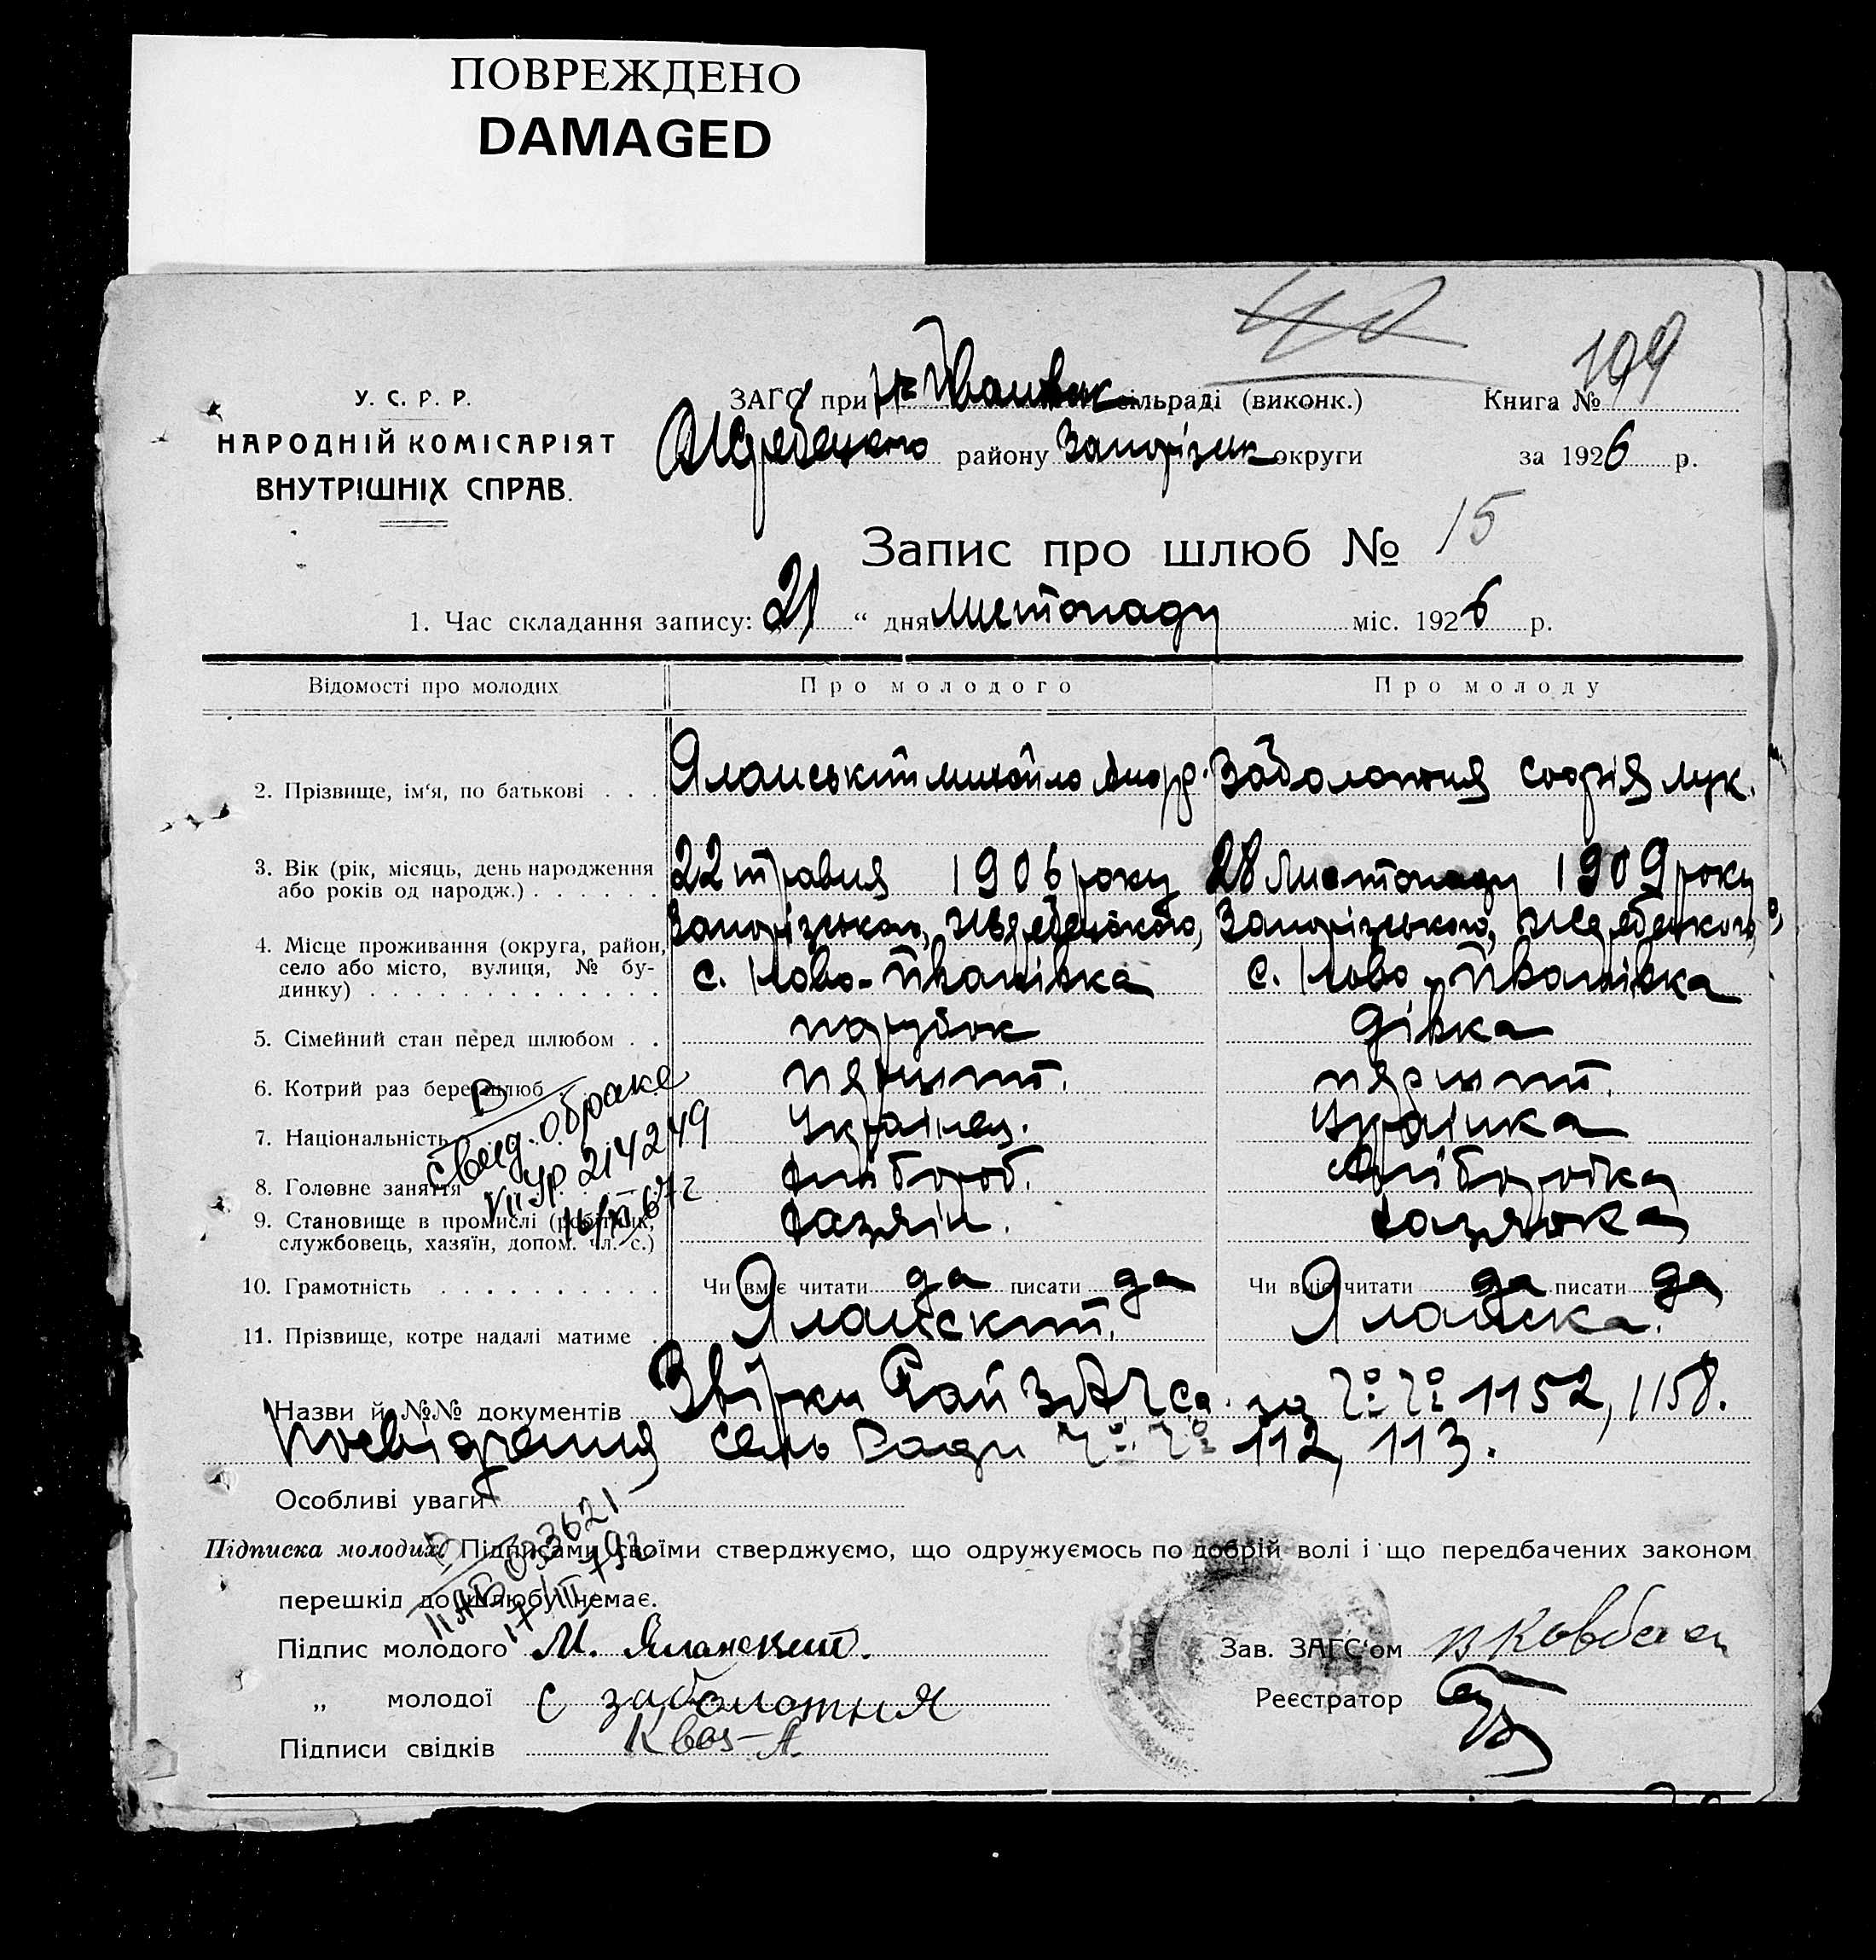 ПОВРЕЖДЕНО
DAMAGED
199
У. С. Р. Р.
НАРОДНІЙ КОМІСАРІЯТ
ВНУТРІШНІХ СПРАВ.
ЗАГС при Н-Іванівск сільраді (виконк.)
Книга №
Жеребецкого району Запоріжск округи
за 1926 р.
Запис про шлюб № 15
1. Час складання запису: „21“ дня листопаду міс. 1926 р.
Відомості про молодих Про молодого Про молоду
2. Прізвище, ім‘я, по батькові . . . Яланський михайло Андр. Заболотня софія лук.
3. Вік (рік, місяць, день народження або років од народж.) . . . . . . 22 травня 1906 року 28 листопаду 1909 року
4. Місце проживання (округа, район, село або місто, вулиця, № будинку) . . . . . . . . . . . . . Запорізького, Жеребецького, Запорізького, Жеребецкого,
с. Ново-Іванівка с. Ново-Іванівка
5. Сімейний стан перед шлюбом . . парубок дівка
6. Котрий раз бере шлюб перший. перший.
7. Національність українец. українка
8. Головне заняття хлібороб. хліборобка
9. Становище в промислі (робітник, службовець, хазяїн, допом. чл. с.) хазяїн. хазяйка
свид. о браке
VII УР 214249
10. Грамотність . . . . . . . . . . Чи вміє читати да писати да Чи вміє читати да писати да
11. Прізвище, котре надалі матиме . Яланский. Яланска.
Назви й №№ документів Звірки Рай ЗАГСа за №№ 1152, 1158.
Посвідчення сель Ради №№ 112, 113.
Особливі уваги
Підписка молодих: Підписами своїми стверджуємо, що одружуємось по добрій волі і що передбачених законом
перешкід до шлюбу немає.
Підпис молодого М. Яланский.
Зав. ЗАГС‘ом
„ молодої С заболотня
Реєстратор
Підписи свідків